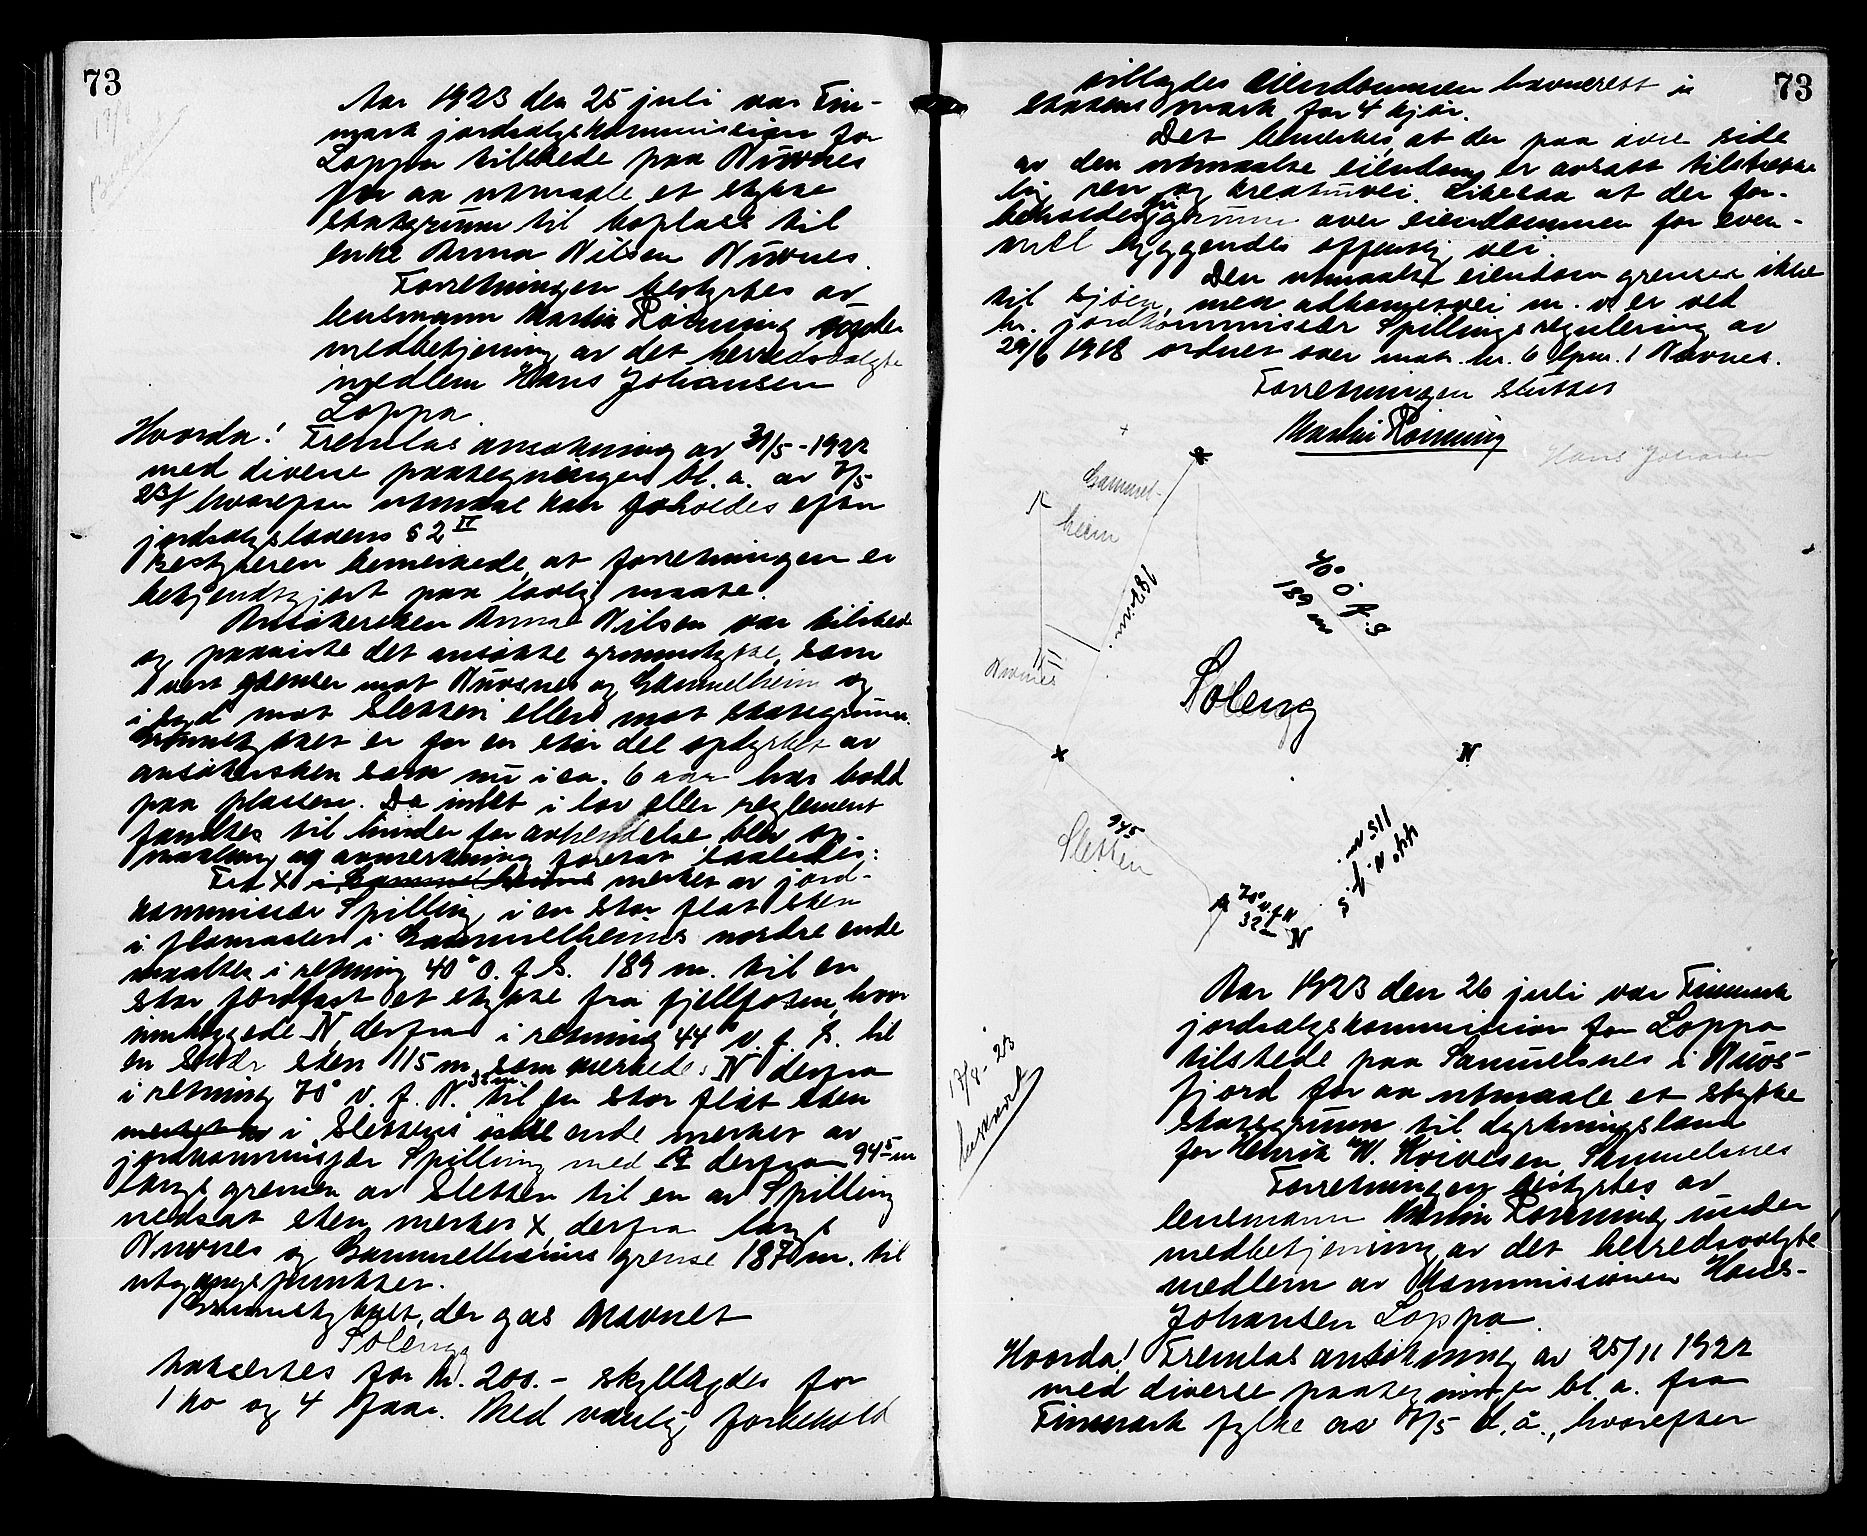 73
Aar 1923 den 25 juli var Fin-
mark jordsalgskommission for
Loppa tilstede paa Nuvsnes
for aa utmaale et stykke
statsgrunn til boplass til
enke Anna Nilsen Nuvsnes.
Forretningen bestyrtes av
lensmann Martin Rönning under
medbetjening av det herredsvalgte
medlem Hans Johansen
Loppa.
Hvorda! Fremlas ansökning av 31/5-1922
med diverse paategninger bl. a. av 7/5
23/ hvorefter utmaal kan foholdes efter
jordsalgslovens § 2 II
Bestyreren bemerkede, at forretningen er
bekjendtgjort paa lovlig maate.
Ansökersken Anna Nilsen var tilstede
og paaviste det ansökte grunnstykke, som
i vest grenser mot Nuvsnes og Gammelheim og
i syd mot Sletten ellers mot statsgrunn.
Grunnstykket er for en stor del opdyrket av
ansökersken som nu i ca. 6 aar har bodd
paa plassen. Da intet i lov eller reglement
fandtes til hinder for avhendelse blev op-
maaling og avmerkning foretat saaledes:
Fra X i Gammelheims merket av jord-
kommissær Spilling i en stor flat sten
i flomaalet i Gammelheims nordre ende
maaltes i retning 40° O. f. S. 189 m. til en
stor jordfast et stykke fra fjellfoten, hvor
innhuggede N, derfra i retning 44° v. f. S. til
en stor sten 115 m som merkedes N derfra
i retning 70° v. f. N. 32 m til en stor flat sten
merket av i Slettens östre ende merket av
jordkommissær Spilling med A derfra 94⁵ m
langs grensen av Sletten til en av Spilling
nedsat sten, merket X, derfra langs
Nuvsnes og Gammelheims grense 187 m. til
utgangspunktet.
Grunnstykket, der gas navnet
Soleng
taksertes for kr. 200.- skyllagdes for
1 ko og 4 faar. Med vanlig forbehold
73
tillagdes eiendommen havnerett i
statens mark for 4 kjör.
Det bemerkes, at der paa övre side
av den utmaalte eiendom er avsatt tilstrekke
lig ren og kreaturvei. Likesaa at der for-
beholdes fri grunn over eiendommen for even-
tuell byggendes offentlig vei.
Den utmaalte eiendom grenser ikke
til sjöen, men adkomstvei m. v. er ved
hr. jordkommissær Spillings regulering av
29/6 1918 ordnet over matr. nr. 6 lpnr. 1 Nuvsnes.
Forretningen sluttet
Martin Rönning
Hans Johansen
Gammel-
heim
N
187 m.
40° O. f. S
189 m
Nuvsnes
Soleng
X
N
94⁵
Sletten
44° v. f. S
115 m.
A
70° v. f. N
32
N
Aar 1923 den 26 juli var Finmark
jordsalgskommission for Loppa
tilstede paa Samuelsnes i Nuvs-
fjord for aa utmaale et stykke
statsgrunn til dyrkningsland
for Henrik W. Kvivesen, Samuelsnes
17/8-23
Forretningen bestyrtes av
lensmann Martin Rönning under
medbetjening av det herredsvalgte
medlem av kommissionen Hans
Johansen Loppa.
Hvorda! Fremlas ansökning av 25/11 1922
med diverse paategninger bl. a. fra
Finmark fylke av 7/5 d. å., hvorefter